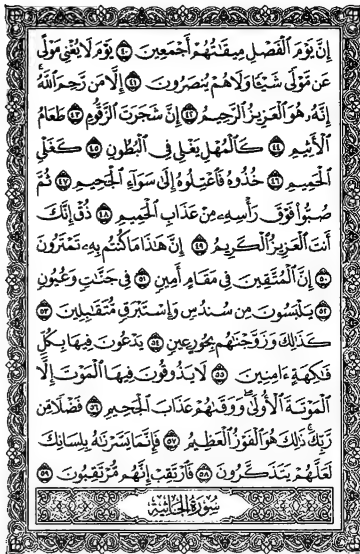 إِنَّ يَوْمَ ٱلْفَصْلِ مِيقَٰتُهُمْ أَجْمَعِينَ ٤٠ يَوْمَ لَا يُغْنِى مَوْلًى
عَن مَّوْلًى شَيْـًٔا وَلَا هُمْ يُنصَرُونَ ٤١ إِلَّا مَن رَّحِمَ ٱللَّهُ
إِنَّهُۥ هُوَ ٱلْعَزِيزُ ٱلرَّحِيمُ ٤٢ إِنَّ شَجَرَتَ ٱلزَّقُّومِ ٤٣ طَعَامُ
ٱلْأَثِيمِ ٤٤ كَٱلْمُهْلِ يَغْلِى فِى ٱلْبُطُونِ ٤٥ كَغَلْىِ
ٱلْحَمِيمِ ٤٦ خُذُوهُ فَٱعْتِلُوهُ إِلَىٰ سَوَآءِ ٱلْجَحِيمِ ٤٧ ثُمَّ
صُبُّوا۟ فَوْقَ رَأْسِهِۦ مِنْ عَذَابِ ٱلْحَمِيمِ ٤٨ ذُقْ إِنَّكَ
أَنتَ ٱلْعَزِيزُ ٱلْكَرِيمُ ٤٩ إِنَّ هَٰذَا مَا كُنتُم بِهِۦ تَمْتَرُونَ
٥٠ إِنَّ ٱلْمُتَّقِينَ فِى مَقَامٍ أَمِينٍ ٥١ فِى جَنَّٰتٍ وَعُيُونٍ
٥٢ يَلْبَسُونَ مِن سُندُسٍ وَإِسْتَبْرَقٍ مُّتَقَٰبِلِينَ ٥٣
كَذَٰلِكَ وَزَوَّجْنَٰهُم بِحُورٍ عِينٍ ٥٤ يَدْعُونَ فِيهَا بِكُلِّ
فَٰكِهَةٍ ءَامِنِينَ ٥٥ لَا يَذُوقُونَ فِيهَا ٱلْمَوْتَ إِلَّا
ٱلْمَوْتَةَ ٱلْأُولَىٰ وَوَقَىٰهُمْ عَذَابَ ٱلْجَحِيمِ ٥٦ فَضْلًا مِّن
رَّبِّكَ ذَٰلِكَ هُوَ ٱلْفَوْزُ ٱلْعَظِيمُ ٥٧ فَإِنَّمَا يَسَّرْنَٰهُ بِلِسَانِكَ
لَعَلَّهُمْ يَتَذَكَّرُونَ ٥٨ فَٱرْتَقِبْ إِنَّهُم مُّرْتَقِبُونَ ٥٩
سُورَةُ ٱلْجَاثِيَةِ